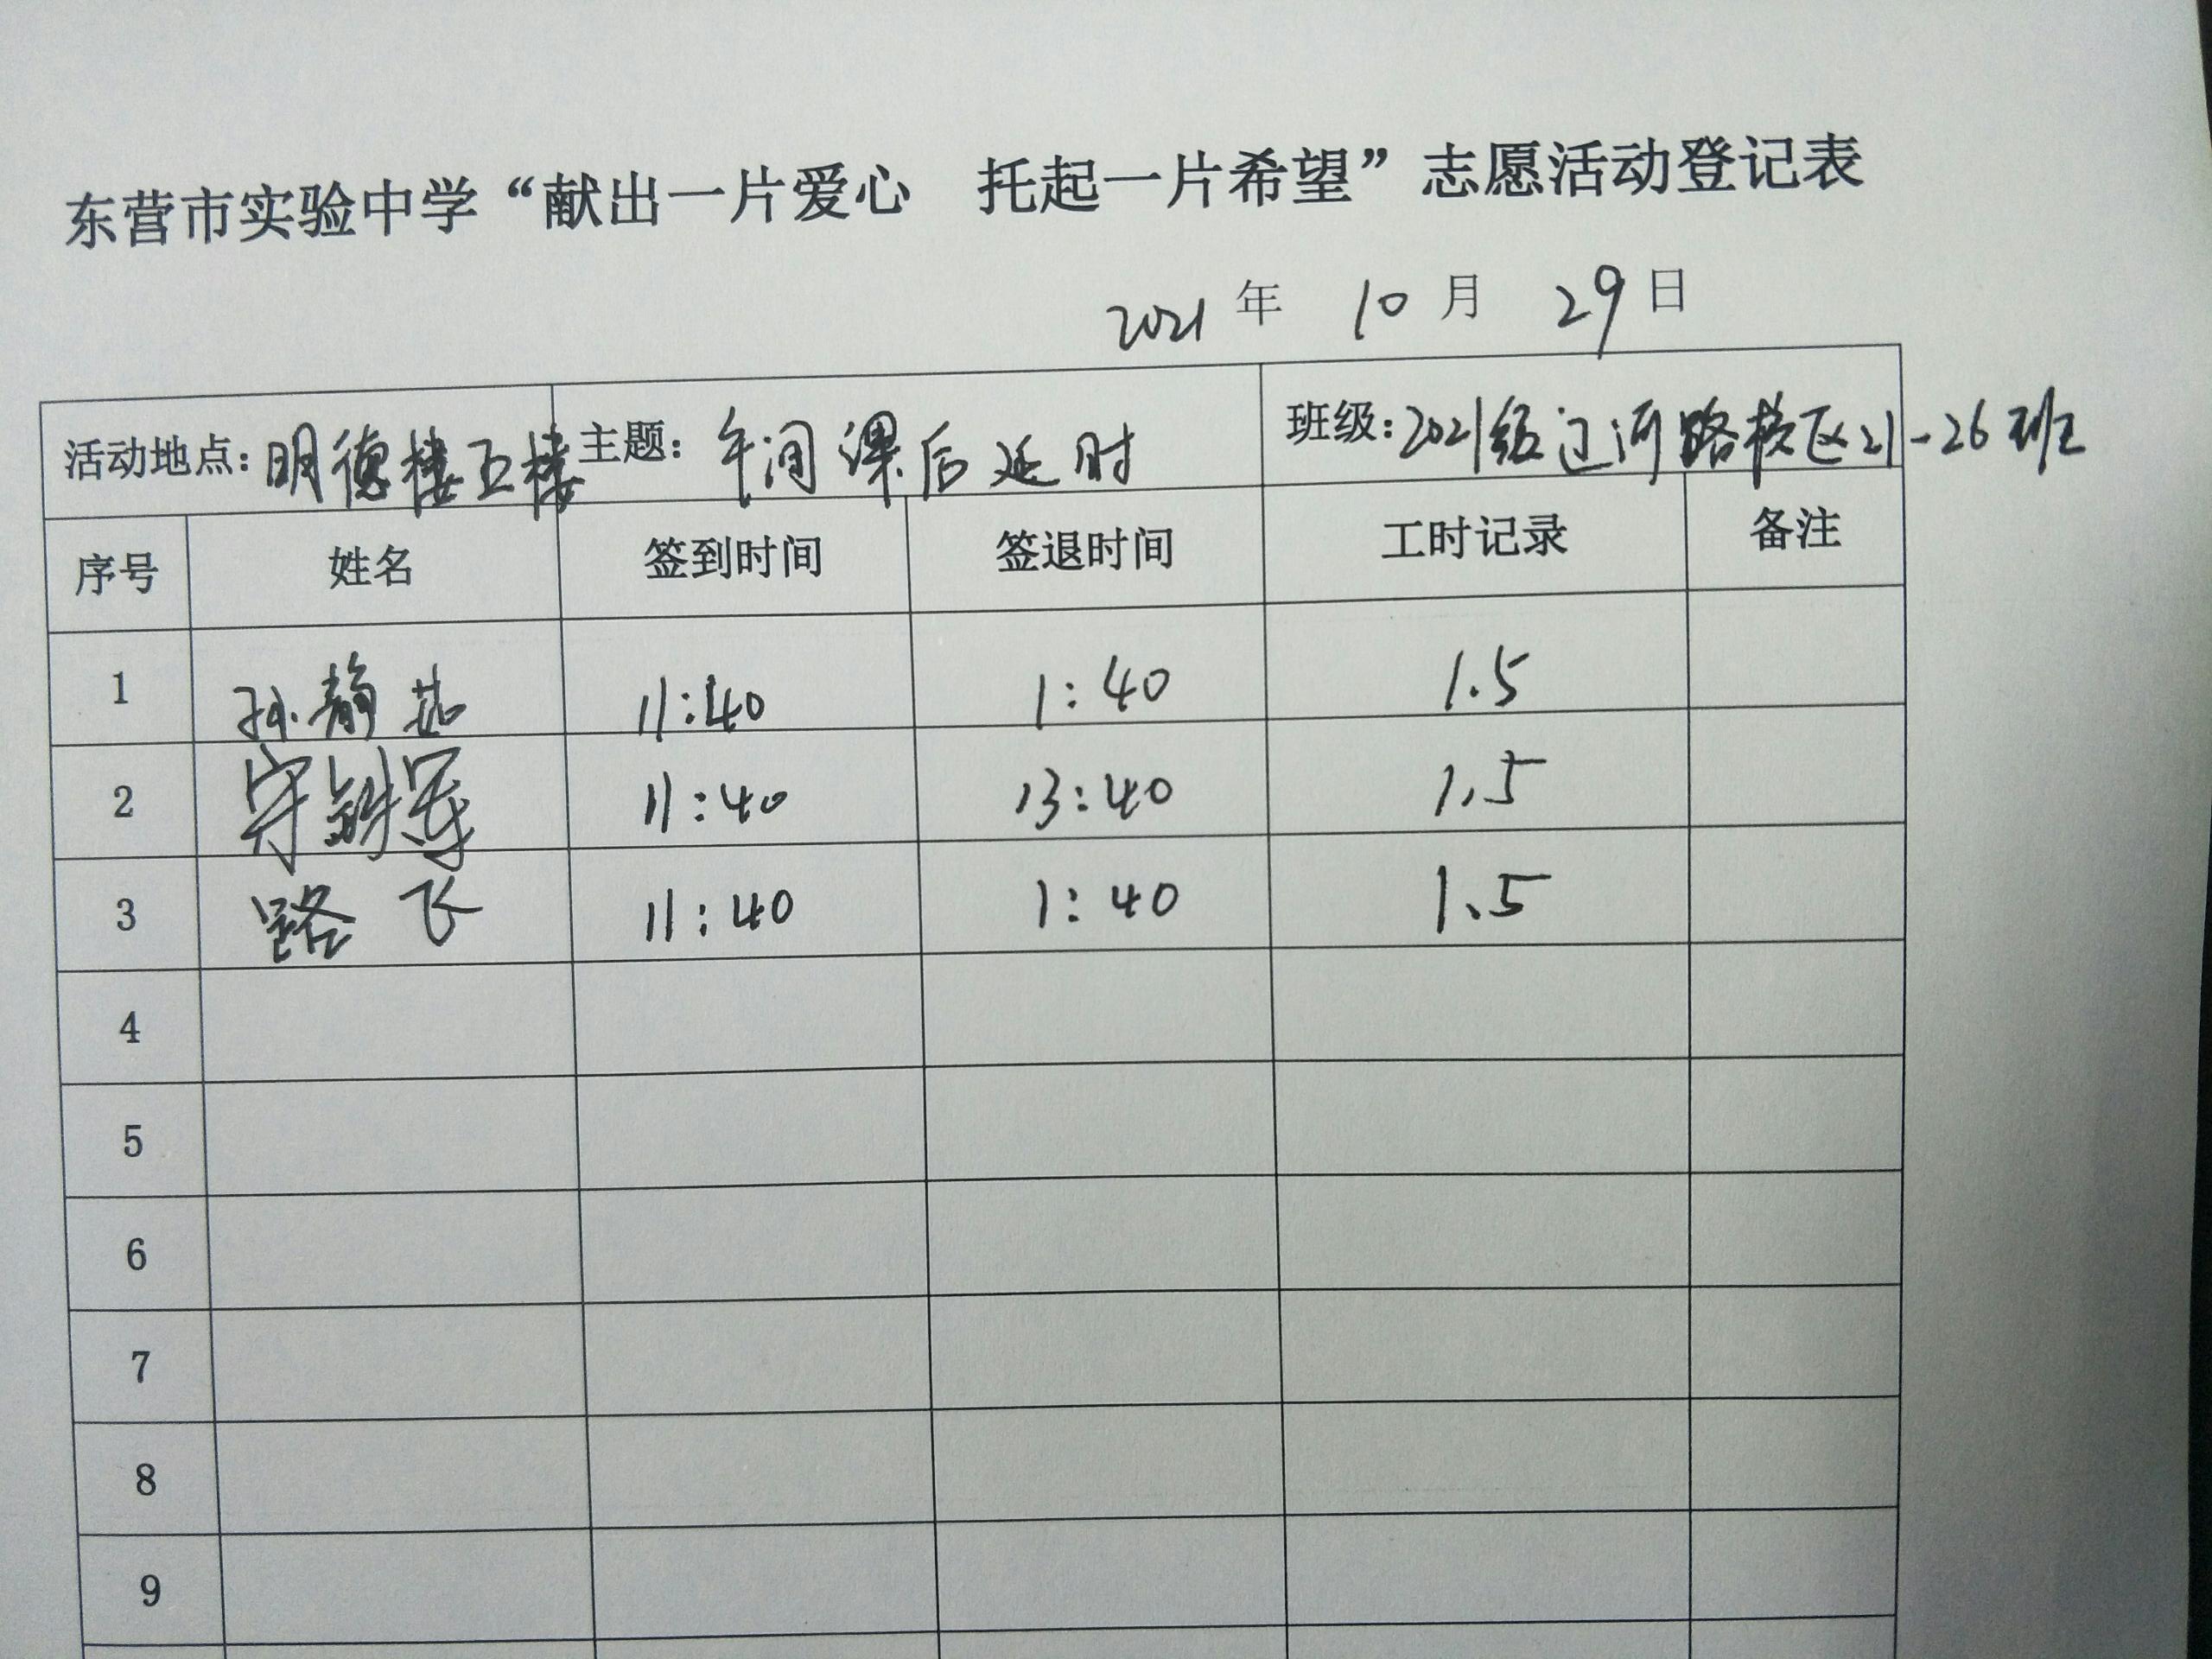 东营市实验中学“献出一片爱心 托起一片希望”志愿活动登记表
2021 年 10 月 29 日
活动地点: 明德楼五楼 主题: 午间课后延时 班级: 2021级辽河路校区21-26班
序号 姓名 签到时间 签退时间 工时记录 备注
1 孙静 11:40 1:40 1.5
2 11:40 13:40 1.5
3 路飞 11:40 1:40 1.5
4
5
6
7
8
9